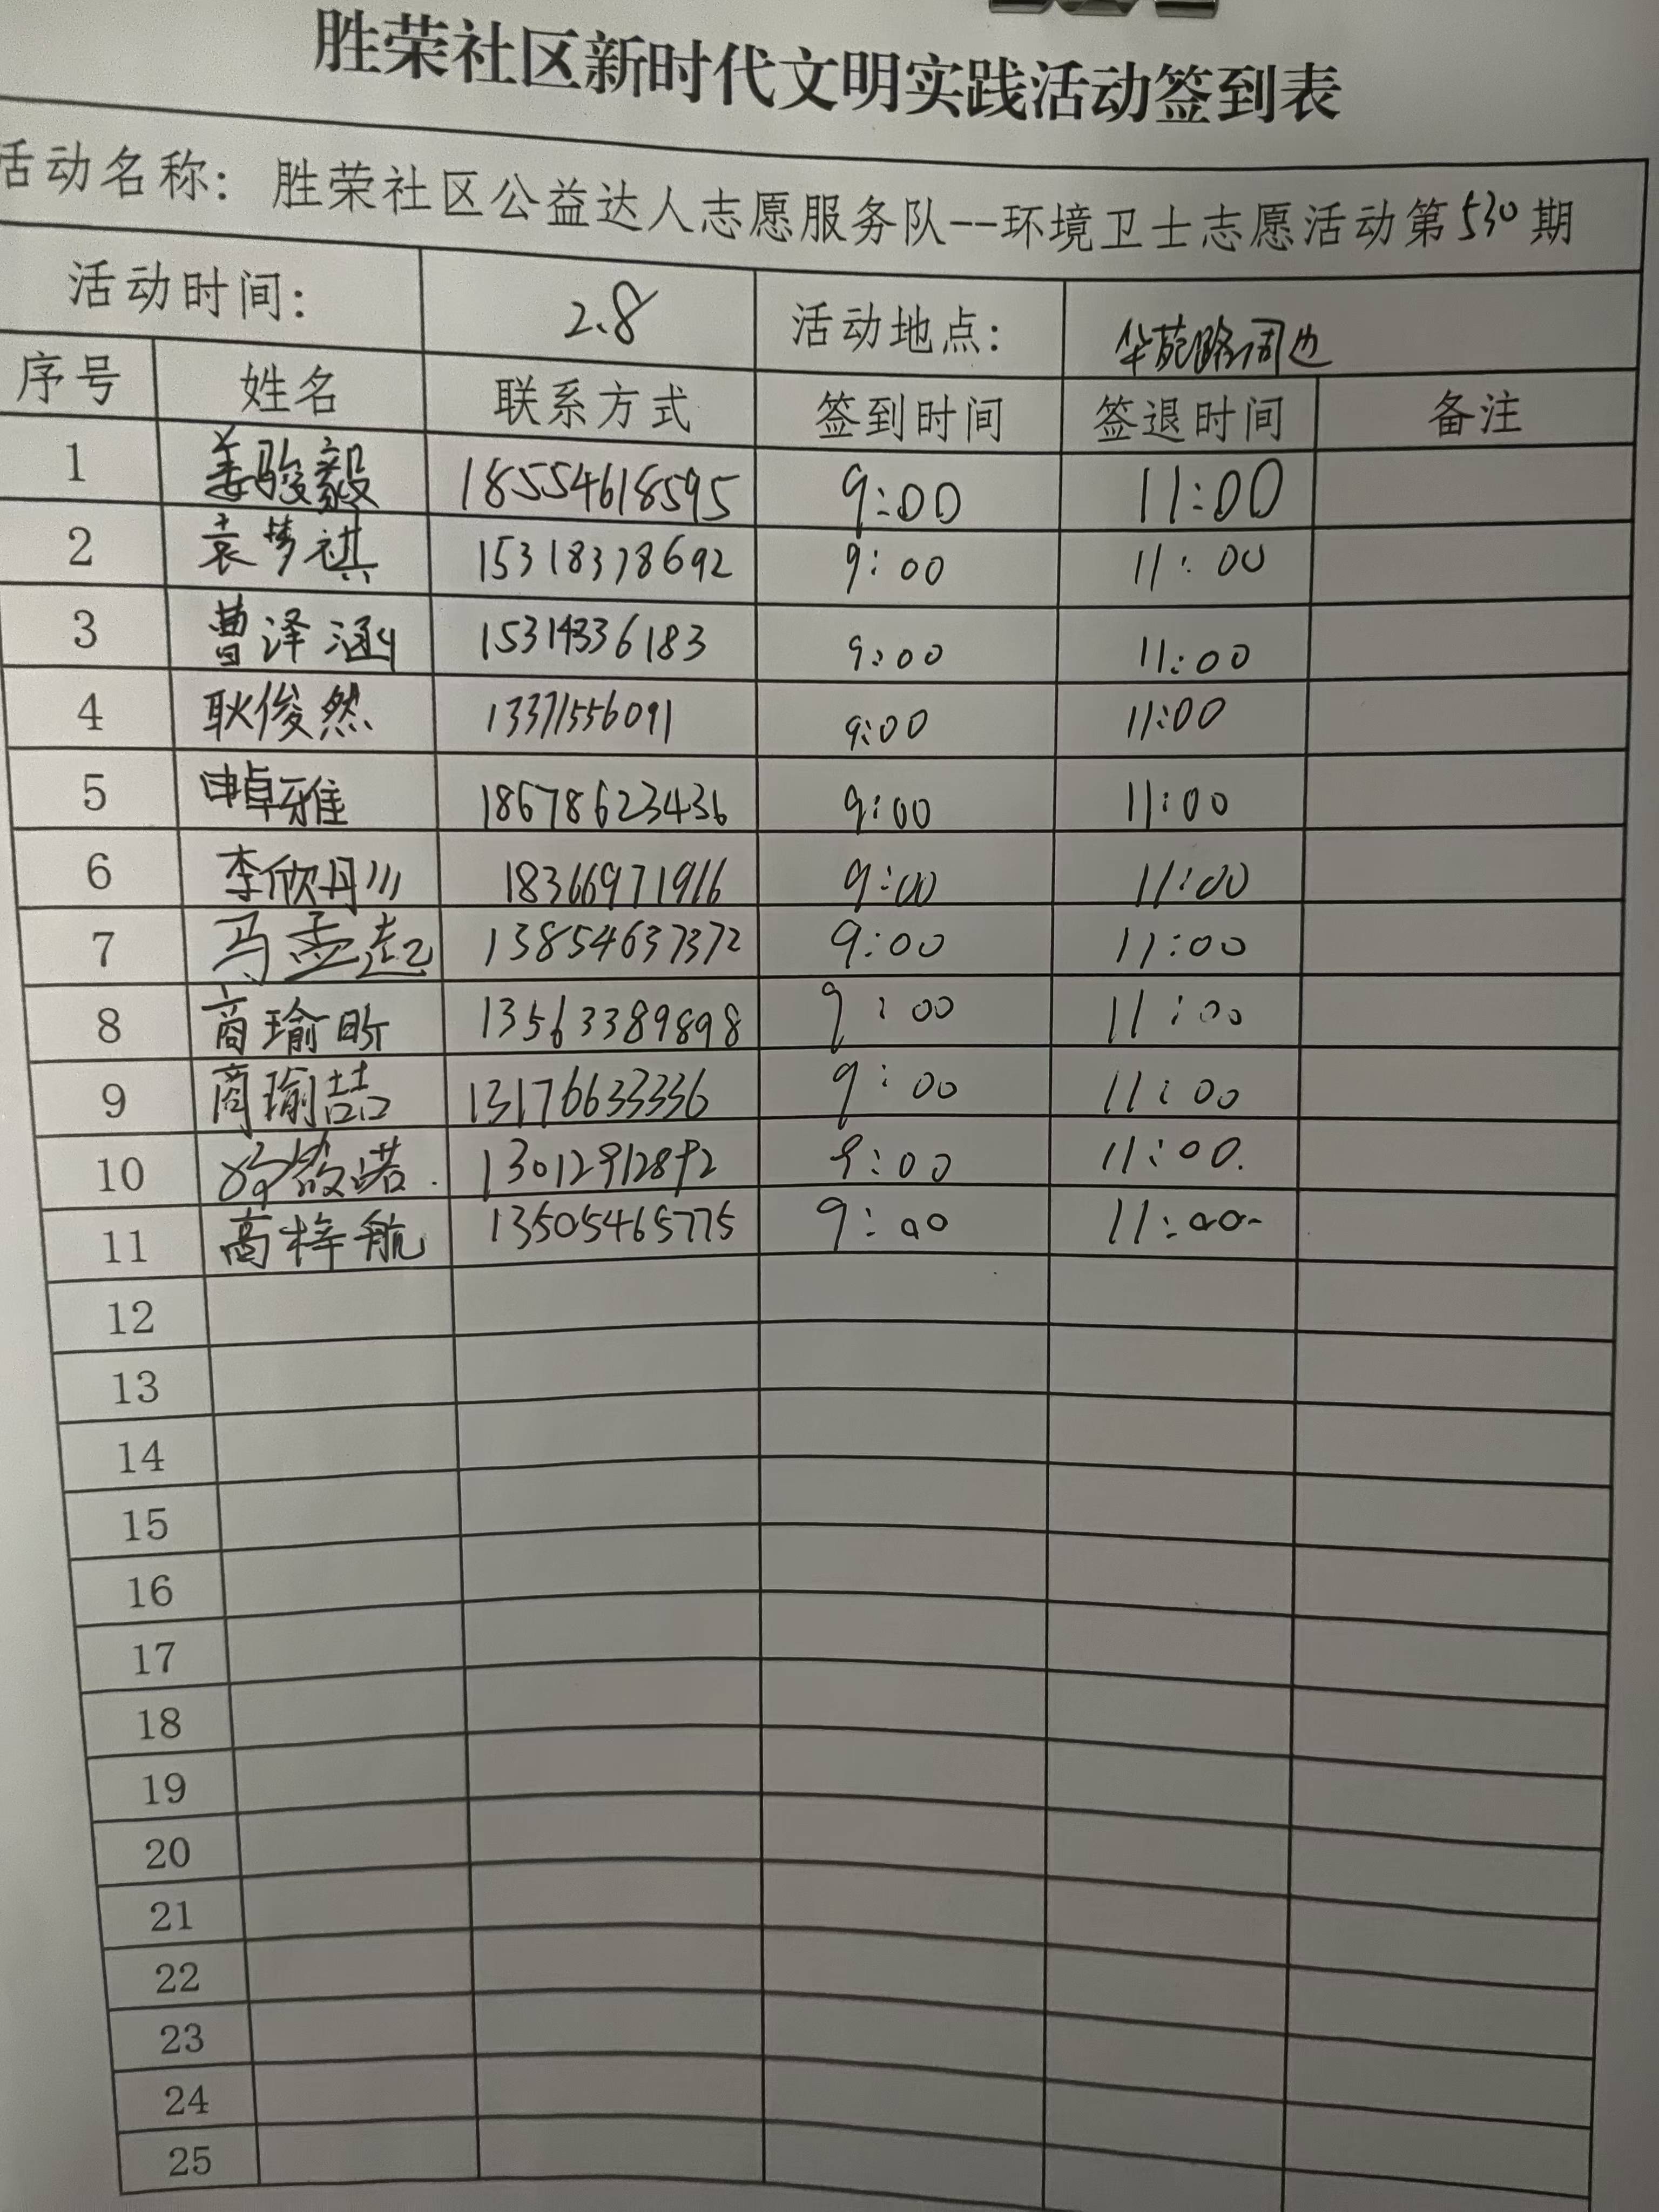 胜荣社区新时代文明实践活动签到表
活动名称：胜荣社区公益达人志愿服务队--环境卫士志愿活动第530期
活动时间： 2.8 活动地点： 华苑路周边
序号 姓名 联系方式 签到时间 签退时间 备注
1 姜骏毅 18554618595 9:00 11:00
2 袁梦祺 15318378692 9:00 11:00
3 曹泽涵 15314336183 9:00 11:00
4 耿俊然 13371556091 9:00 11:00
5 申卓雅 18678623436 9:00 11:00
6 李欣丹 18366971916 9:00 11:00
7 马孟起 13854637372 9:00 11:00
8 商瑜昕 13563389898 9:00 11:00
9 商瑜喆 13176633336 9:00 11:00
10 13012912892 9:00 11:00.
11 高梓航 13505465775 9:00 11:00
12
13
14
15
16
17
18
19
20
21
22
23
24
25